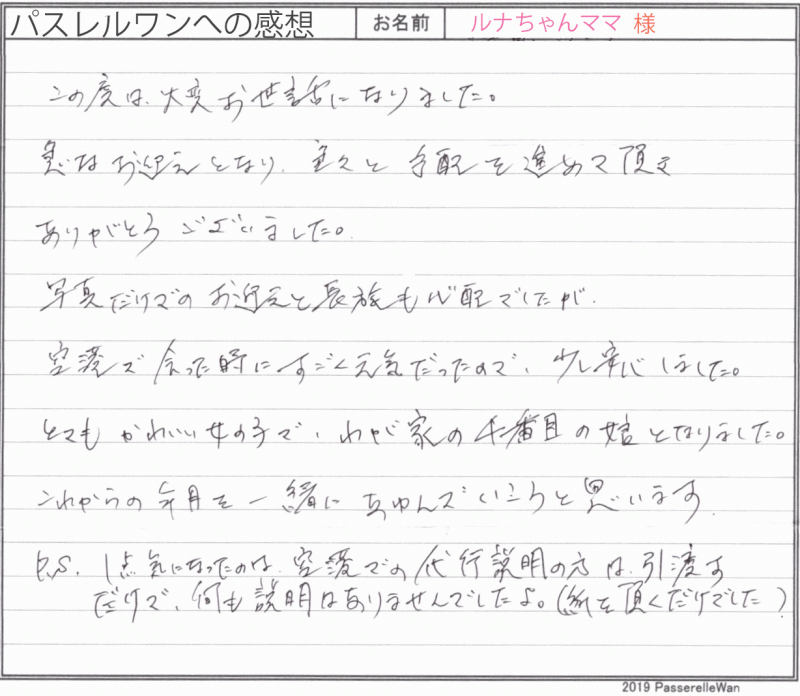 パスレルワンへの感想 お名前 ルナちゃんママ 様
この度は、大変お世話になりました。
急なお迎えとなり、色々と手配を進めて頂き
ありがとうございました。
写真だけでのお迎えと家族も心配でしたが、
空港で会った時にすごく元気だったので、少し安心しました。
とてもかわいい女の子で、わが家の 番目の娘となりました。
これからの年月を一緒にあゆんでいこうと思います。
P.S. 1点気になったのは、空港での代行説明の方は、引渡す
だけで、何も説明はありませんでしたよ。(紙を頂くだけでした)
2019 PasserelleWan